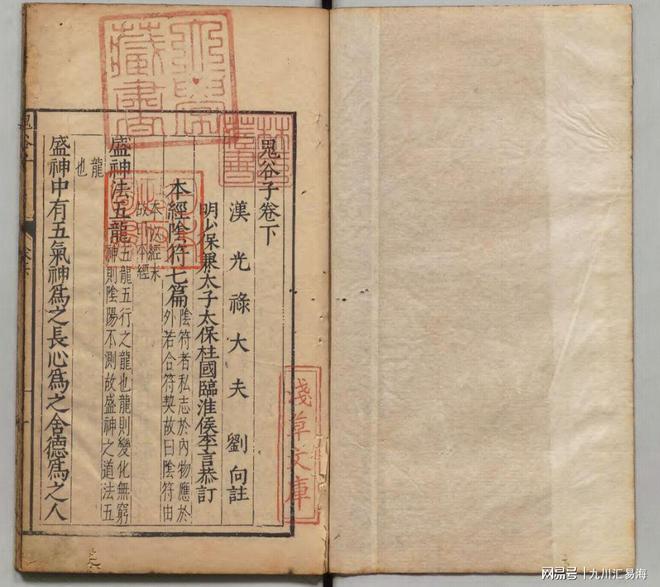 鬼谷子卷下
漢光祿大夫劉向註
明少保兼太子太保柱國臨淮侯李言恭訂
本經陰符七篇
陰符者私志於內物應於
外若合符契故曰陰符由
本以經末
故曰本經
盛神法五龍
五龍五行之龍也龍則變化無窮
神則陰陽不測故盛神之道法五
龍
也
盛神中有五氣神爲之長心爲之舍德爲之人
鬼谷子
淺草文庫
藏書
網易号 | 九川汇易海